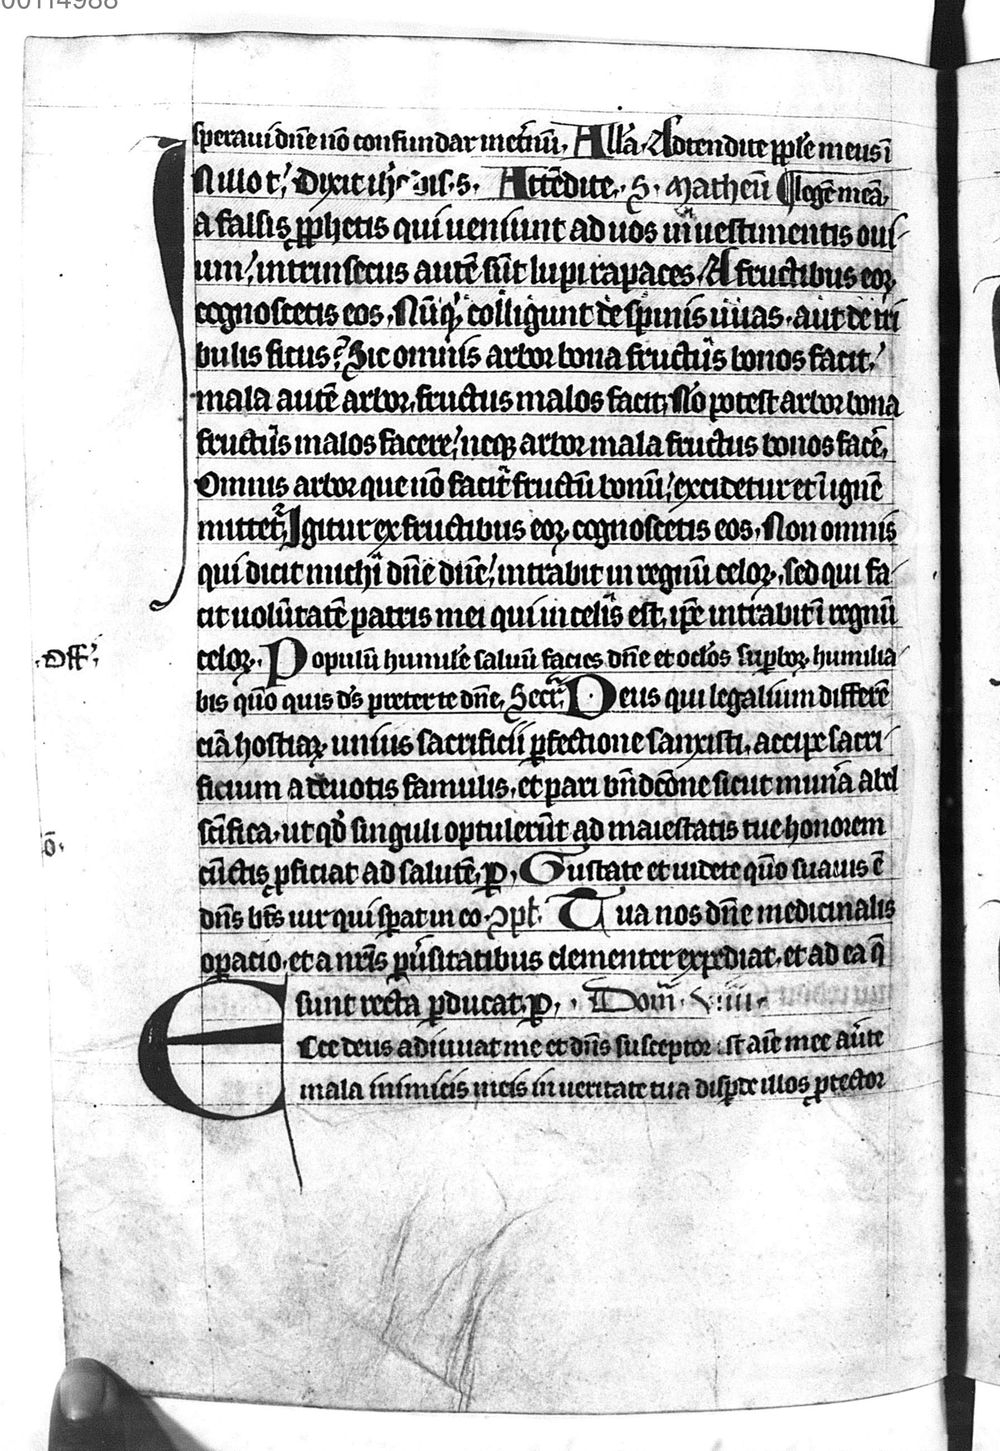 00114988
speraui dn̄e nō confundar inet̄nū. All'a. Adtendite pp̄l'e meus ī
N illo t̄. Dixit ih̄c dis. s. Attēdite. S. Matheū legē meā.
a falsis pp̄hetis qui ueniunt ad uos in uestimentis oui-
um. intrinsecus autē sūt lupi rapaces. A fructibus eoꝝ
cognoscetis eos. Nūq̄ colligunt de spinis uuas. aut de tri
bulis ficus? Sic omnis arbor bona fructus bonos facit.
mala autē arbor. fructus malos facit. Nō potest arbor bona
fructus malos facere. neqꝫ arbor mala fructus bonos facē.
Omnis arbor que nō facit fructū bonū. excidetur et ī ignē
mittet̄. Igitur ex fructibus eoꝝ cognoscetis eos. Non omnis
qui dicit michi dn̄e dn̄e. intrabit in regnū celoꝝ. sed qui fa-
cit uolūtatē patris mei qui in celis est. ip̄e intrabit ī regnū
.Off.
celoꝝ. Populū humilē saluū facies dn̄e et oclos supꝛboꝝ humilia
bis qm̄o quis ds̄ preter te dn̄e. Secr̄. Deus qui legalium differē
ciā hostiaꝝ unius sacrificii ꝑfectione sanxisti. accipe sacri-
ficium a deuotis famulis. et pari bn̄dcōne sicut mun̄a abel
ō.
scīfica. ut qd̄ singuli optulerūt ad maiestatis tue honorem
cūctis ꝓficiat ad salutē. p̄. Gustate et uidete qm̄o suauis ē
dn̄s bt̄s uir qui sp̄at in eo. Ↄpl. Tua nos dn̄e medicinalis
opatio. et a nr̄is p̄uersitatibus clementer expediat. et ad ea q̄
sunt recta ꝑducat. p̄. Dom̄. viiii.
Ecce deus adiuuat me et dn̄s susceptor est aīe mee au̇te
mala inimicis meis in ueritate tua disp̄de illos ꝓtector